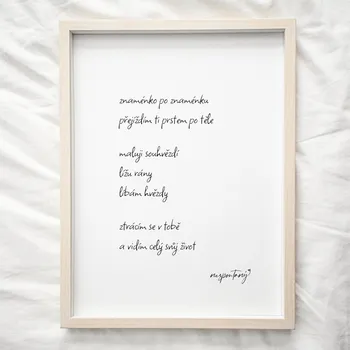 znaménko po znaménku
přejíždím ti prstem po těle
maluji souhvězdí
lížu rány
líbám hvězdy
ztrácím se v tobě
a vidím celý svůj život